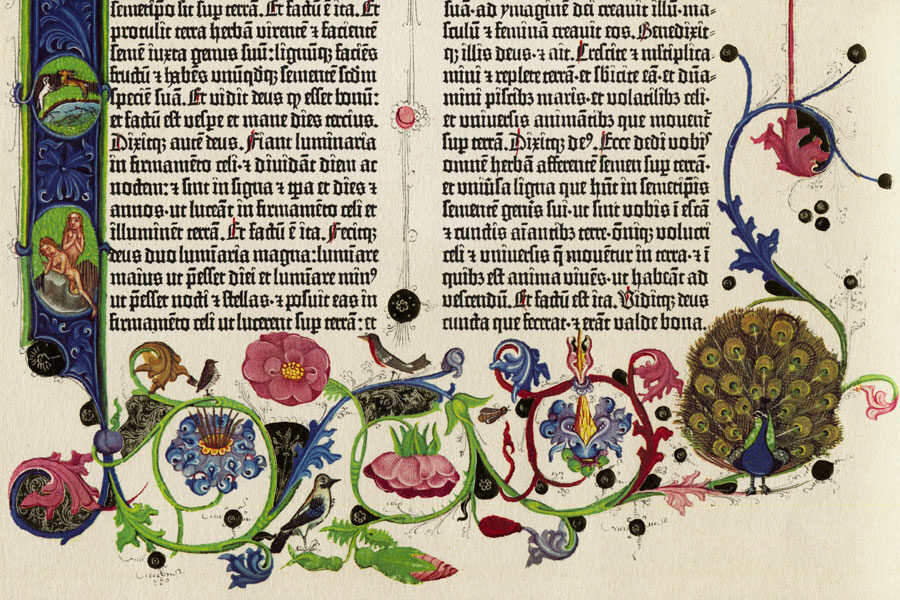 semetipso sit sup terrã. Et factũ ẽ ita. Et
protulit terra herbã virentẽ ⁊ facientẽ
semẽ iuxta genus suũ: lignũq; faciẽs
fructũ ⁊ habẽs unũqdq; sementẽ scdm
speciẽ suã. Et vidit deus ꝙ esset bonũ:
et factũ est vespe et mane dies tercius.
Dixitq; autẽ deus. Fiant luminaria
in firmamẽto celi · ⁊ dividãt diem ac
noctem: ⁊ sint in signa ⁊ tpa et dies ⁊
annos · ut luceãt in firmamẽto celi et
illuminẽt terrã. Et factũ ẽ ita. Fecitq;
deus duo lumĩaria magna: lumĩare
maius ut pẽsset diei et lumĩare minꝰ
ut pẽsset nocti ⁊ stellas · ⁊ posuit eas in
firmamẽto celi ut lucerent sup terrã: et
suã · ad ymaginẽ dei creavit illũ · ma-
sculũ ⁊ feminã creavit eos. Benedixit-
q; illis deus · ⁊ ait. Crescite ⁊ mĩtiplica-
mini ⁊ replete terrã · et sbicite eã · et dñã-
mini piscibꝰ maris · et volatilibꝰ celi ·
et universis animãtibꝰ que moventr
sup terrã. Dixitq; deꝰ. Ecce dedi vobis
omnẽ herbã afferentẽ semen sup terrã ·
et univsa ligna que hñt in semetipsis
sementẽ genis sui · ut sint vobis ĩ escã
⁊ cunctis aĩantibꝰ terre · õniq; volucri
celi ⁊ universis q̃ movẽtur in terra · ⁊ ĩ
quibꝰ est anima vivẽs · ut habeãt ad
vescendũ. Et factũ est ita. Viditq; deus
cuncta que fecerat · ⁊ erãt valde bona.